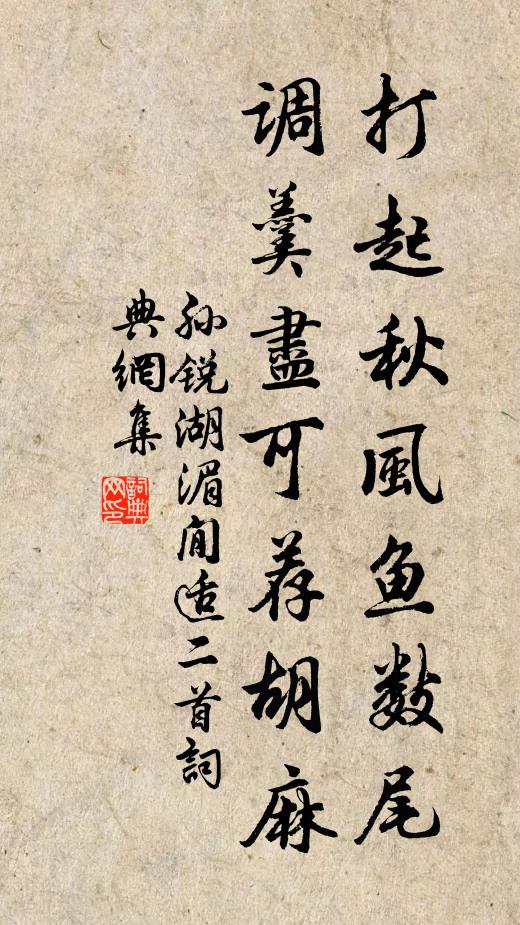 打起秋風鱼数尾
调羹盡可荐胡麻
孙锐湖湄闲适二首詞
典網集
詞典
网印